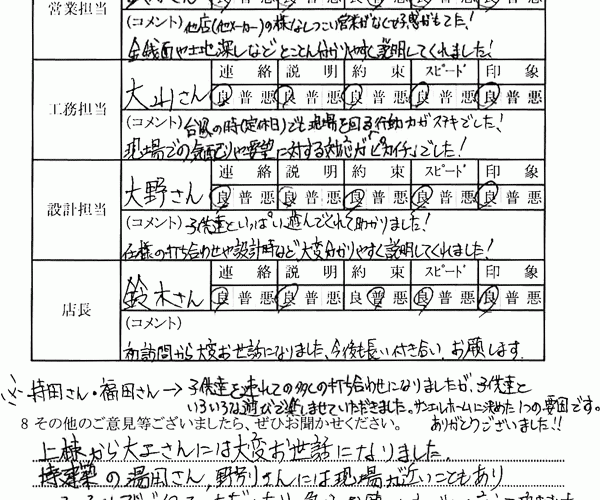 営業担当
(コメント) 他店(他メーカー)の様なしつこい営業がなくて好感がもてた!
金銭面や土地探しなどとことん分かりやすく説明してくれました!
連絡 説明 約束 スピード 印象
工務担当 大山さん 良 普 悪 良 普 悪 良 普 悪 良 普 悪 良 普 悪
(コメント) 台風の時(定休日)でも現場を回る行動力がステキでした!
現場での気配りや要望に対する対応が「ピカイチ」でした!
連絡 説明 約束 スピード 印象
設計担当 大野さん 良 普 悪 良 普 悪 良 普 悪 良 普 悪 良 普 悪
(コメント) 子供達といっぱい遊んでくれて助かりました!
仕様の打ち合わせや設計時など、大変分かりやすく説明してくれました!
連絡 説明 約束 スピード 印象
店長 鈴木さん 良 普 悪 良 普 悪 良 普 悪 良 普 悪 良 普 悪
(コメント)
初訪問から大変お世話になりました、今後も長い付き合い、お願いします。
持田さん・福田さん→子供達を連れての多くの打ち合わせになりましたが、子供達と
いろいろな遊びで楽しませていただきました。サンエルホームに決めた1つの要因です。
ありがとうございました!!
8 その他のご意見等ございましたら、ぜひお聞かせください。
上棟から大工さんには大変お世話になりました。
の湯田さん,野刈さんには現場が近いこともあり